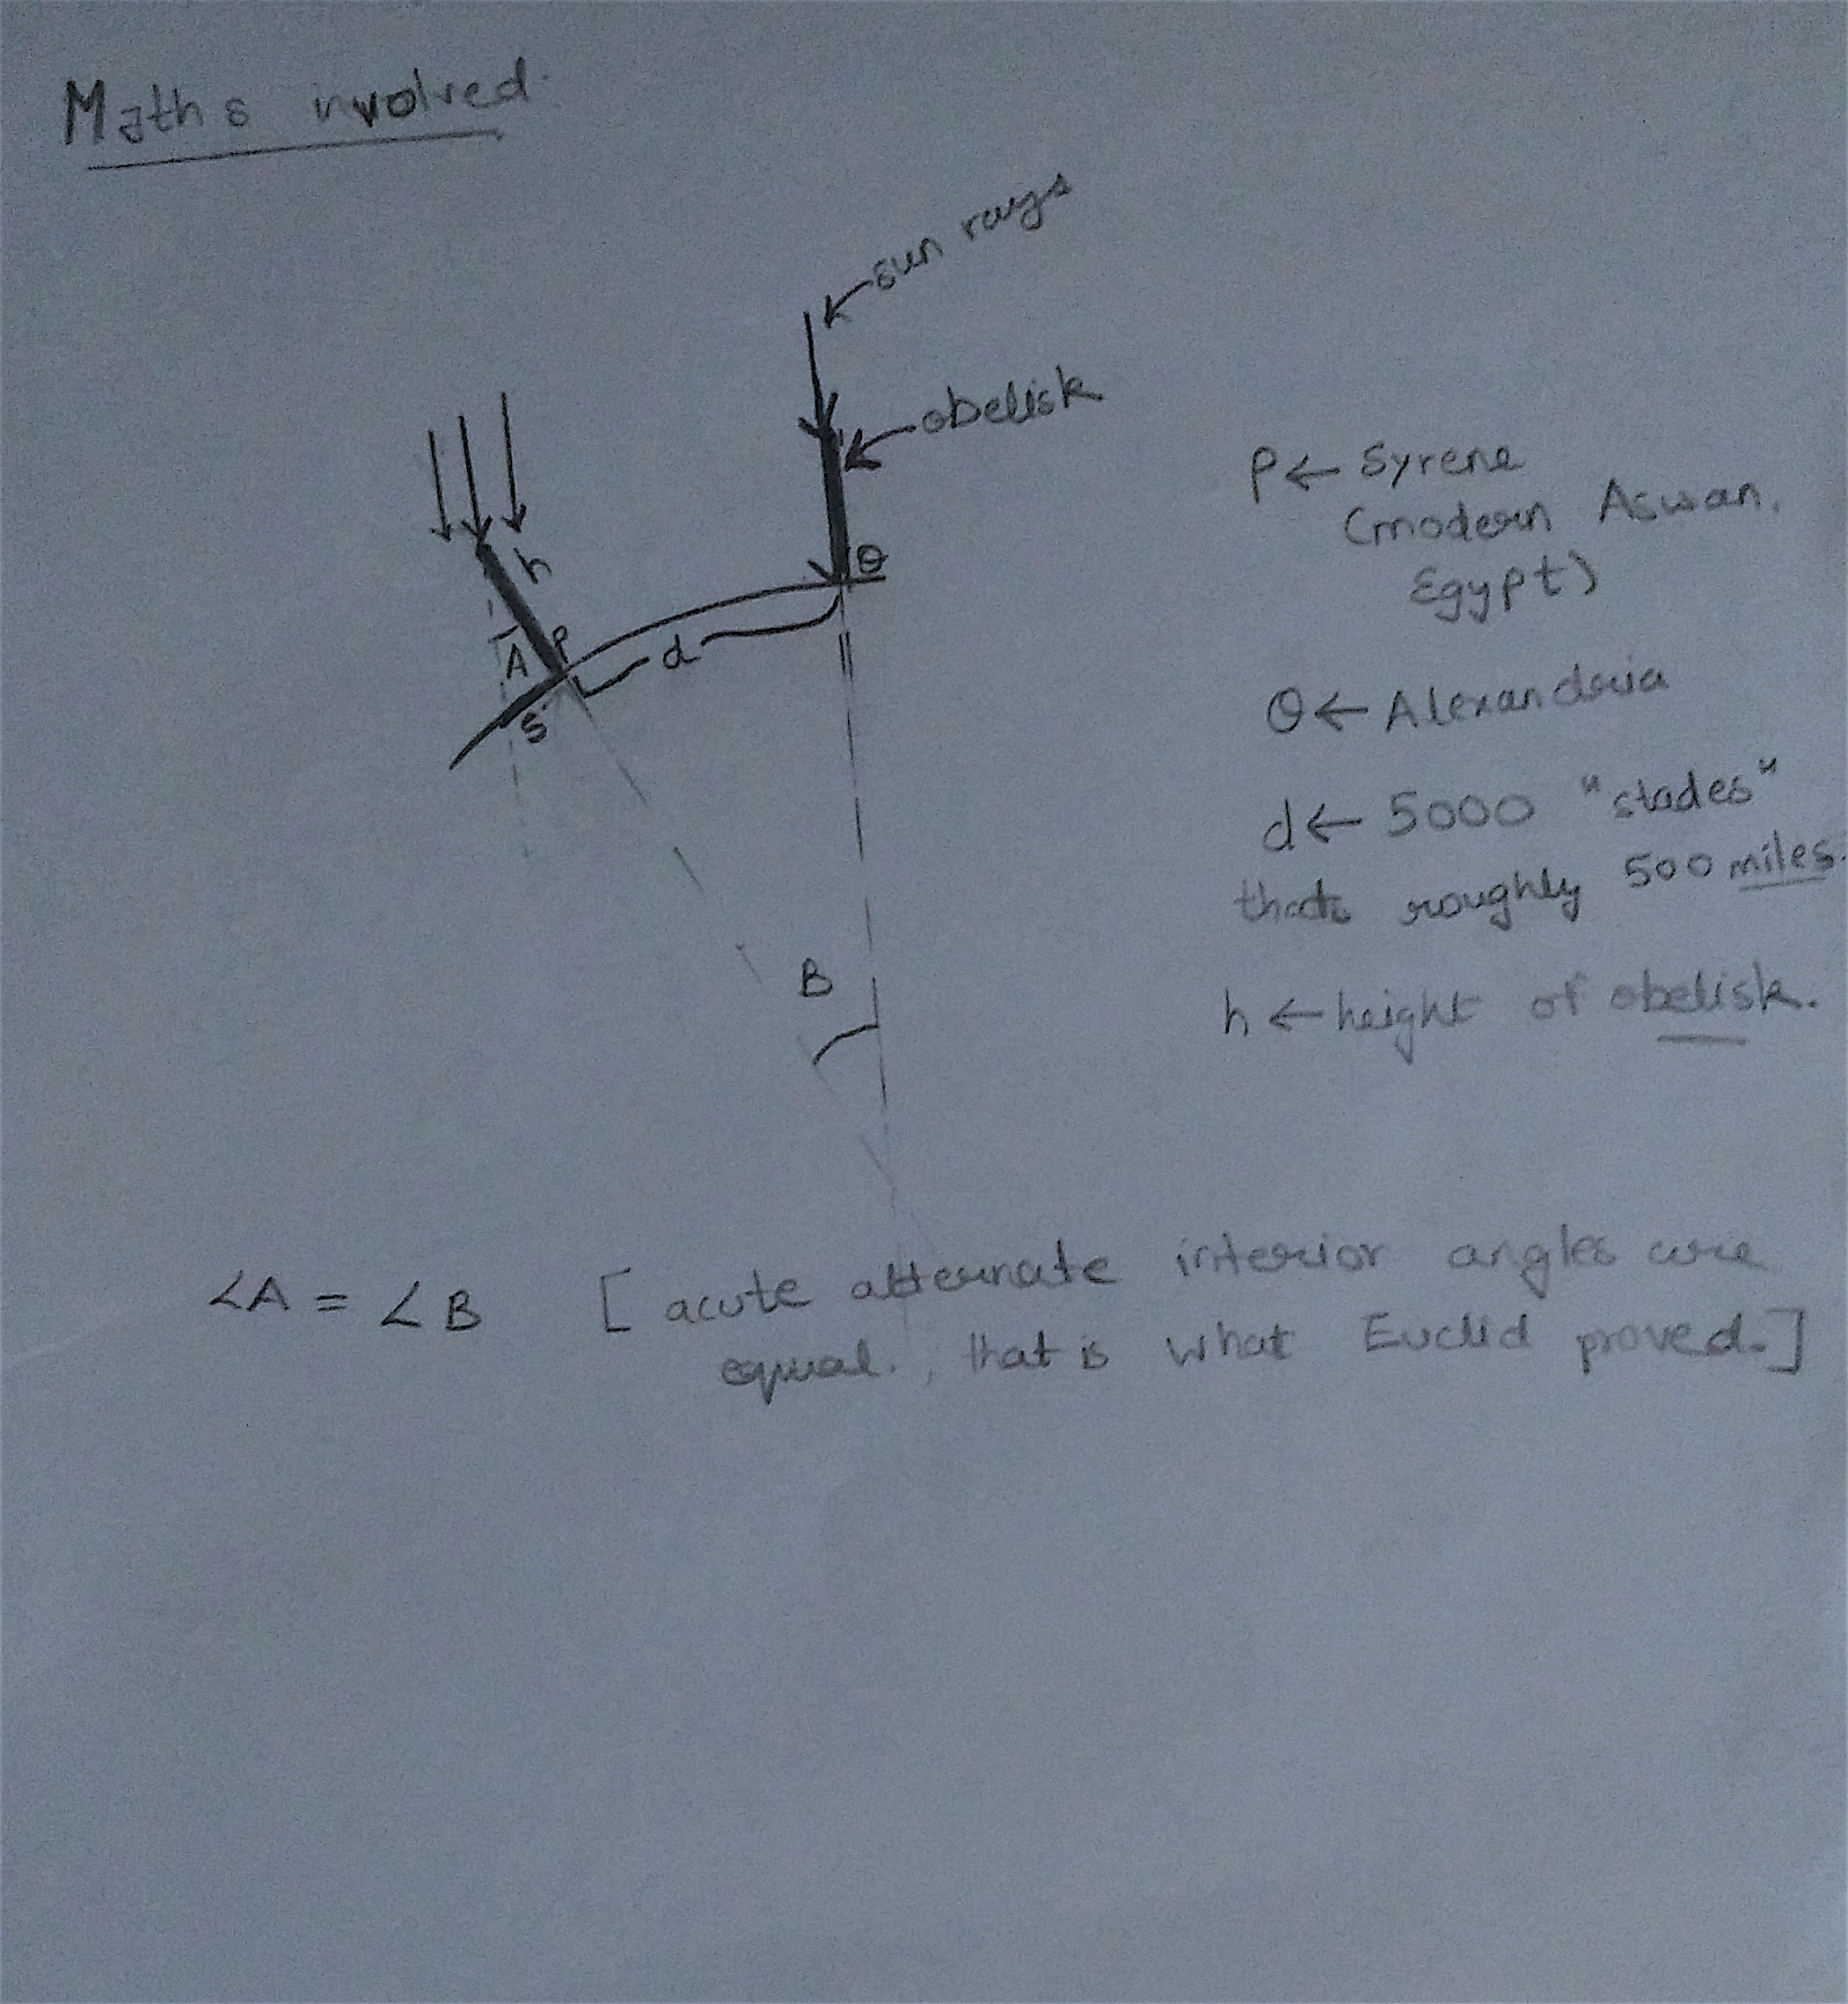 Maths involved.
sun rays
obelisk
h
θ
P
A
d
S
B
P ← Syrene
(modern Aswan,
Egypt)
θ ← Alexandria
d ← 5000 "stades"
thats roughly 500 miles.
h ← height of obelisk.
∠A = ∠B [ acute alternate interior angles are
equal., that is what Euclid proved.]